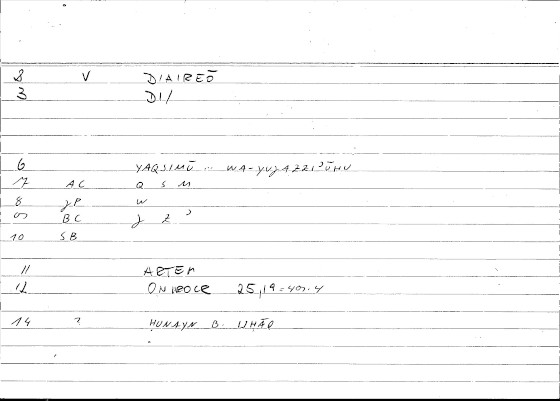 2 V DIAIREŌ
3 DI/
6 YAQSIMŪ .. WA-YUǦAZZIʾŪHU
7 AC Q S M
8 GP W
9 BC Ǧ Z ʾ
10 SB
11 ARTEM
12 ONIROCR 25,19 =
14 ? HUNAYN B. ISHĀQ